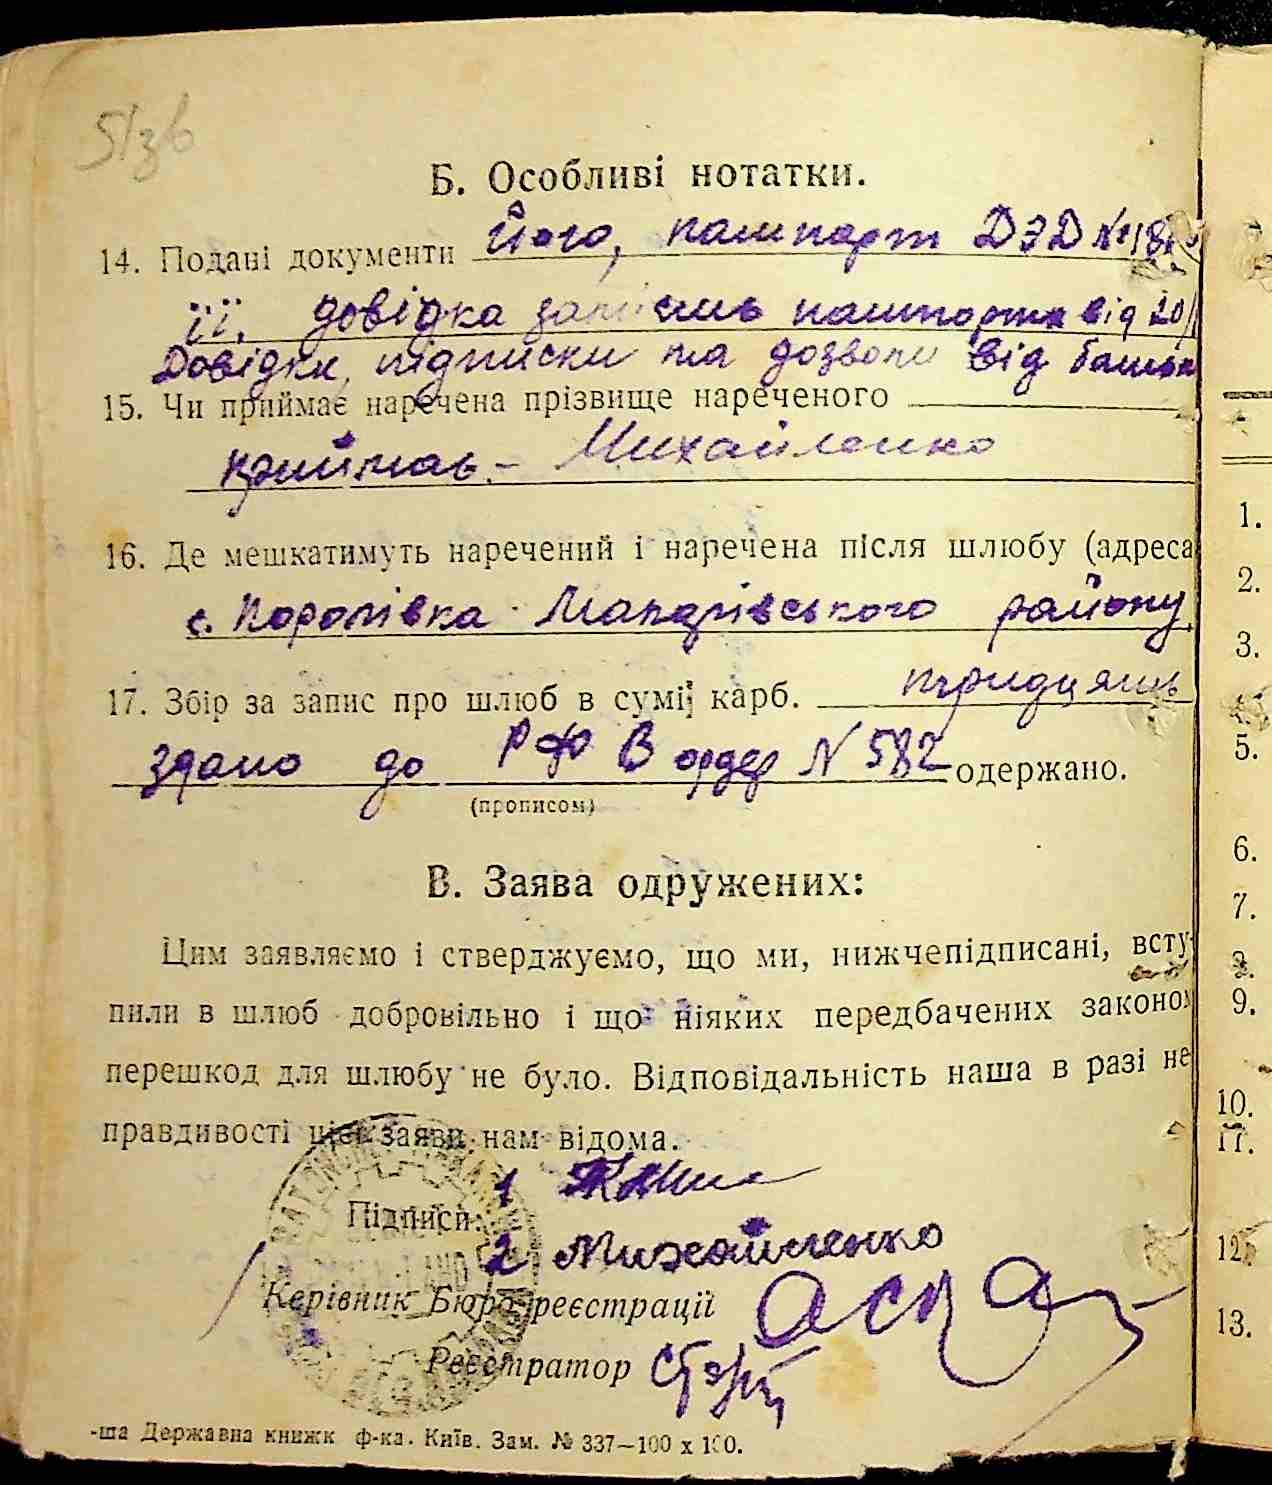 51зв
Б. Особливі нотатки.
14. Подані документи Його, пашпорт ДЭД №
її, довідка замісць пашпорта від 20/
Довідки, підписки та дозволи від батьк
15. Чи приймає наречена прізвище нареченого
приймає - Михайленко
16. Де мешкатимуть наречений і наречена після шлюбу (адреса
с. Королівка Макарівського району
17. Збір за запис про шлюб в сумі карб. тридцять
здано до РФВ ордер N 582 одержано.
(прописом)
В. Заява одружених:
Цим заявляємо і стверджуємо, що ми, нижчепідписані, всту-
пили в шлюб добровільно і що ніяких передбачених законом
перешкод для шлюбу не було. Відповідальність наша в разі не
правдивості цієї заяви нам відома.
Підписи: 1
2 Михайленко
Керівник Бюро реєстрації
Реєстратор
-ша Державна книжк ф-ка. Київ. Зам. № 337—100 х 100.
1.
2.
3.
5.
6.
7.
9.
10.
11.
12.
13.